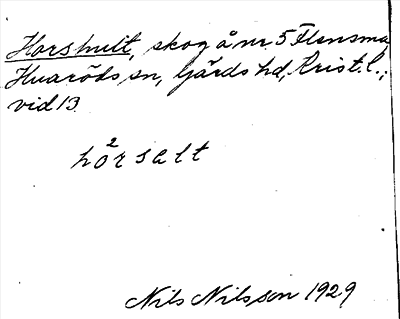 Horshult, skog å nr 5 Flensma
Huaröds sn, Gärds hd, Krist. l.,
vid 13
hö2rsalt
Nils Nilsson 1929